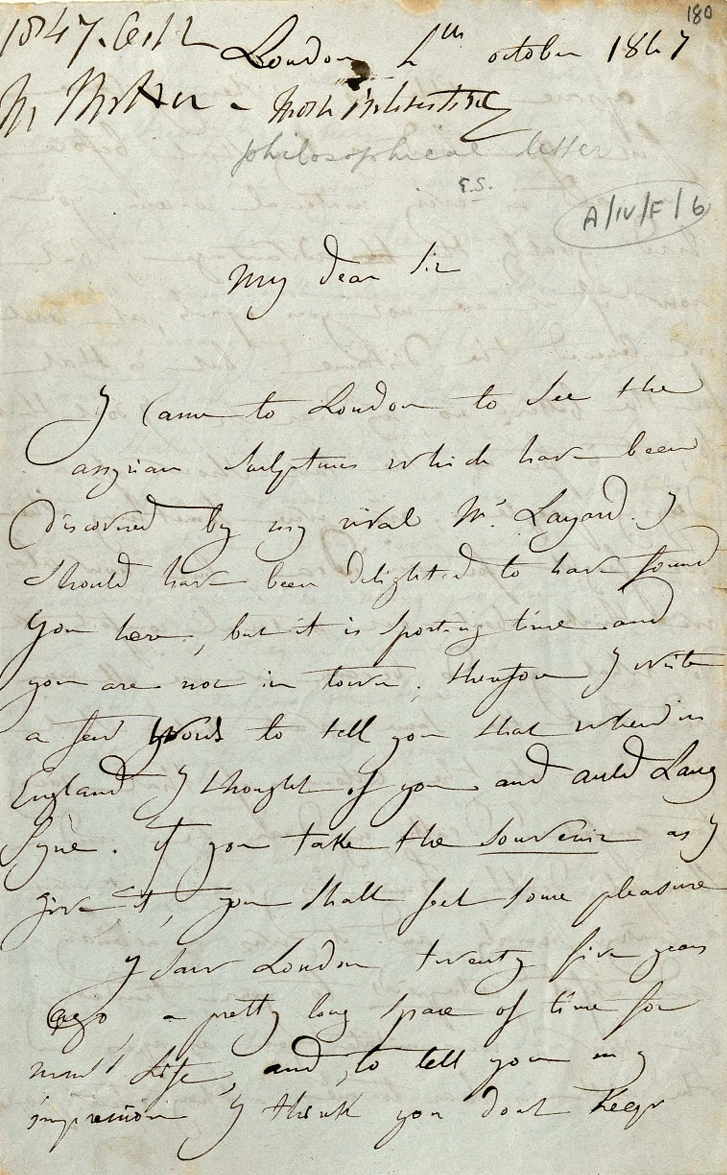 180
1847. Oct 4
London 4th october 1847
Mr Botta - most interesting
philosophical letter
E.S.
A/IV/F/6
My dear Sir
I Came to London to see the
assyrian sculptures which have been
discovered by my rival Mr. Layard. I
should have been delighted to have found
you here, but it is sporting time and
you are not in town; therefore I write
a few words to tell you that when in
England I thought of you and auld Lang
Syne. If you take the souvenir as I
give it, you shall feel some pleasure
I saw London twenty five years
ago, a pretty long space of time for
man's Life, and, to tell you my
impression I think you dont Keep